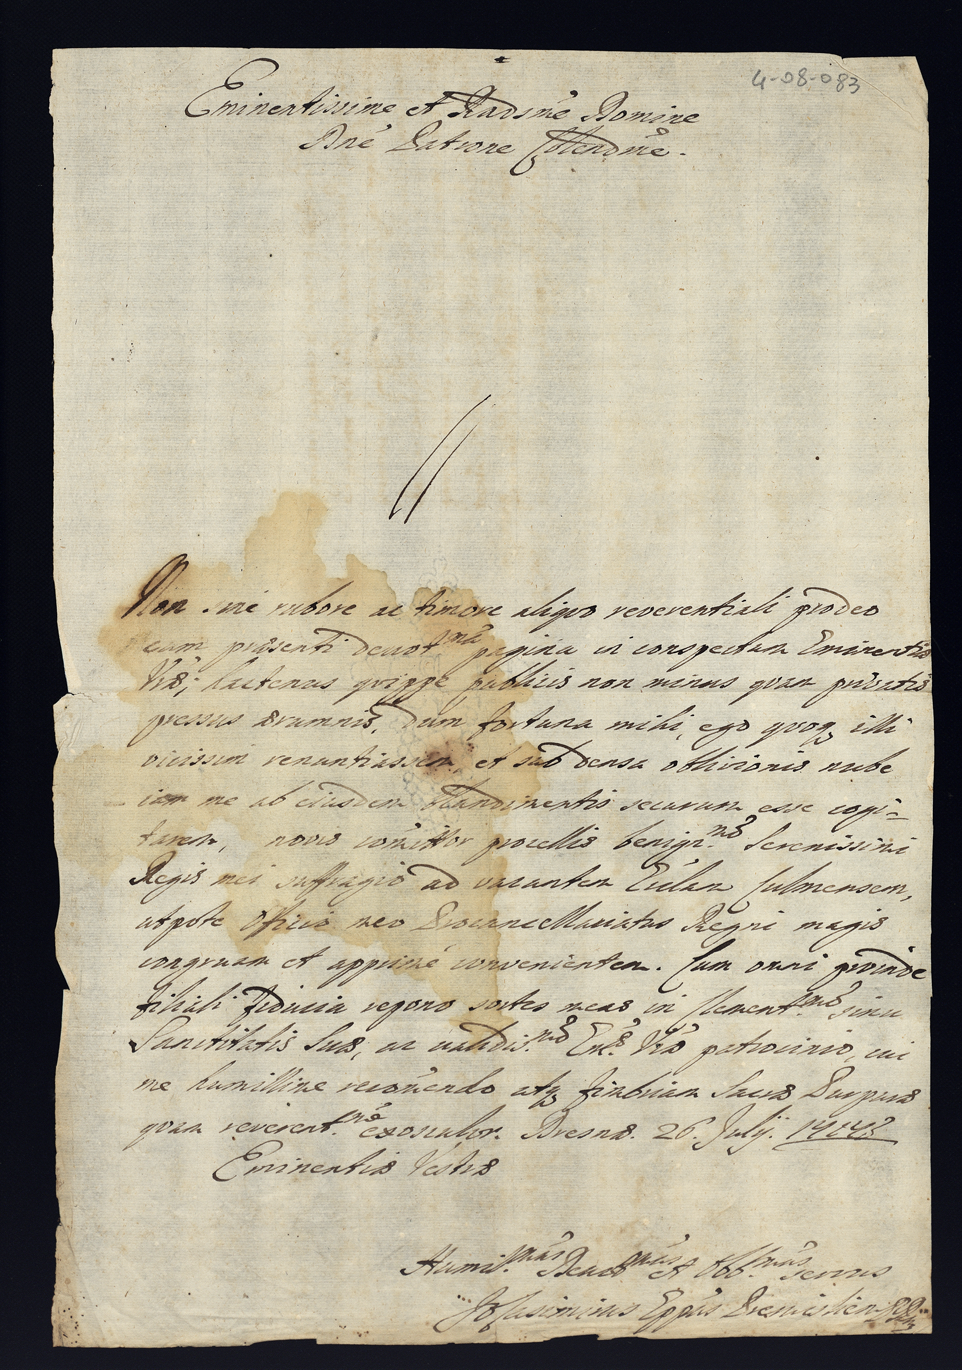 4-08-083
Eminentissime et Rndsm̃e Domine
Dnẽ Patrone Colendm̃e.
Non sine rubore ac timore aliquo reverentiali prodeo
cum præsenti devotmâ pagina in conspectum Eminentiæ
Vræ; hactenus quippe publicis non minus quam privatis
pressus ærumnis, dum fortuna mihi, ego quoq; illi
vicissim renuntiassem, et sub densa oblivionis nube
iam me ab eiusdem blandimentis securum esse cogi=
tarem, novis comittor procellis benign.mo Serenissimi
Regis mei suffragio ad vacantem Ecclam Culmensem,
utpote officio meo Procancellariatus Regni magis
congruam et apprime convenientem. Cum omni proinde
filiali fiducia repono sortes meas in clement.mo sinu
Sanctitatis Suæ, ac validis.mo Emæ Vræ patrocinio, cui
me humillime recomendo atq; fimbriam Sacræ Purpuræ
quam reverent.me exosculor. Dresnæ. 26. Julij.
Eminentiæ Vestræ
Humil.mus Devot.mus et Obb.mus servus
Eppus